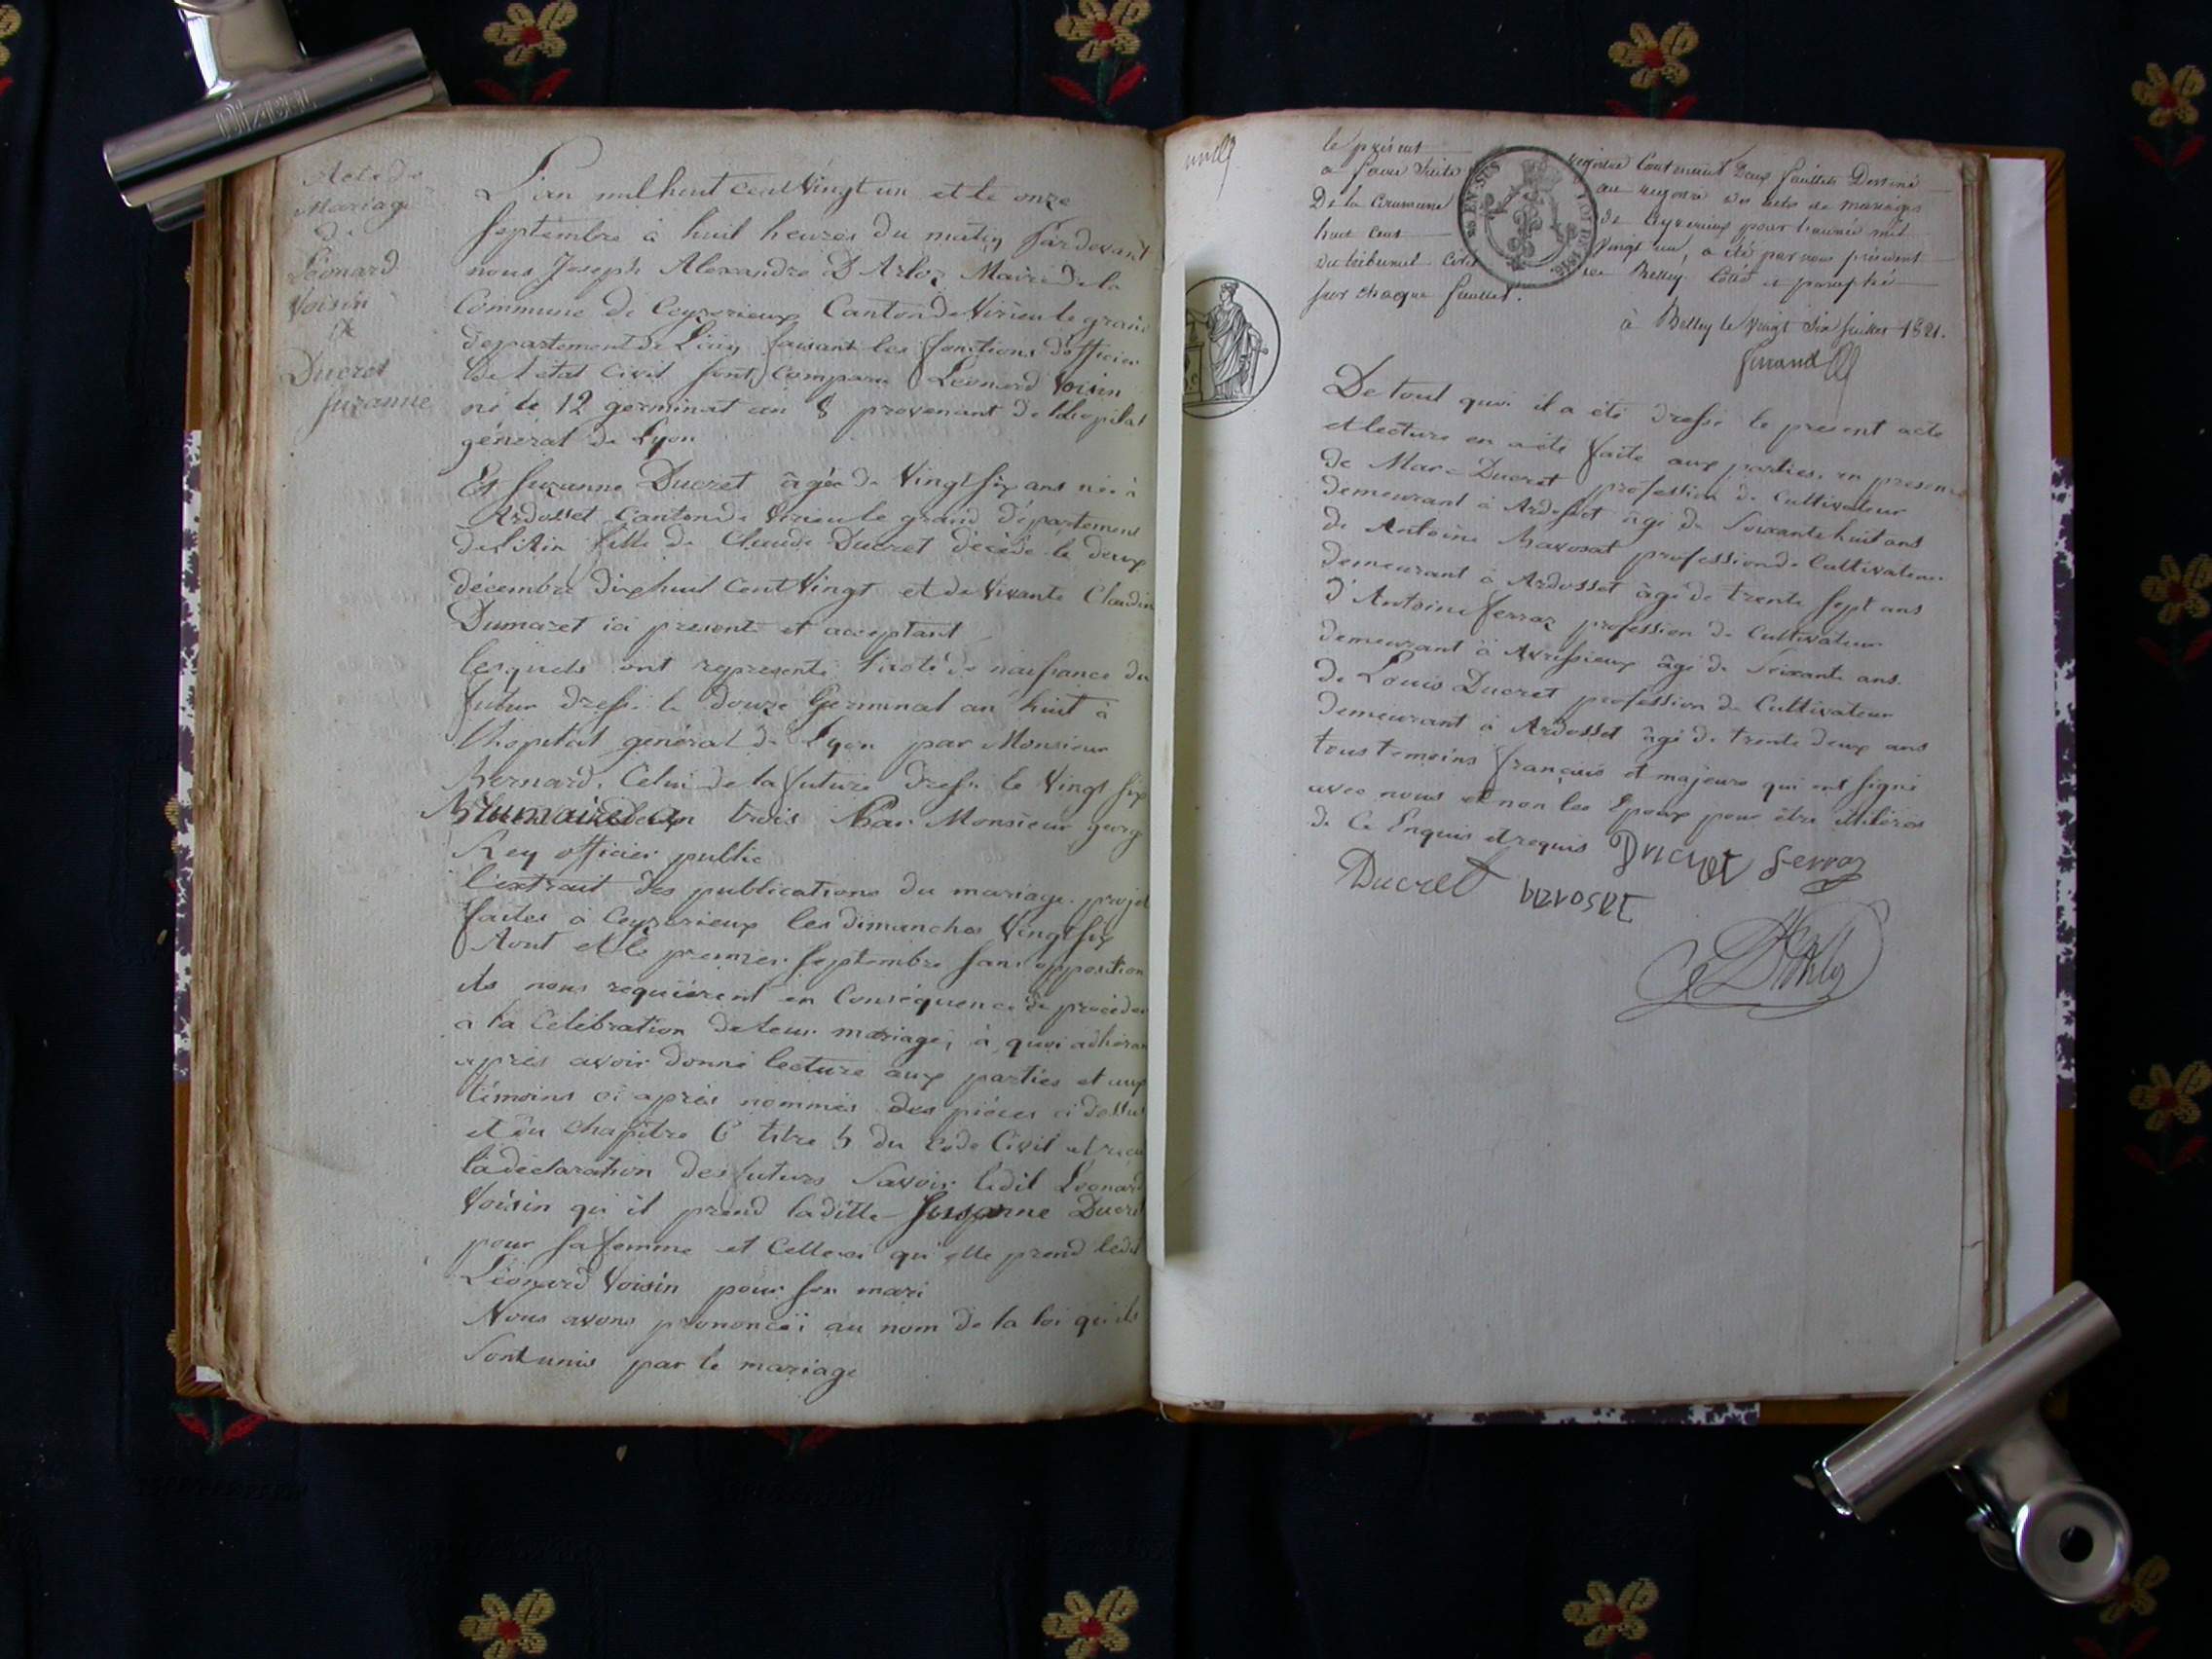 Acte de
Mariage
de
Léonard
Voisin
et
Ducret
suzanne
L'an mil huit cent Vingt un et le onze
septembre à huit heures du matin Pardevant
nous Joseph Alexandre D Arloz Maire de la
Commune de Ceyzerieux Canton de Virieu le grand
departement de L'ain faisant les fonctions d'officier
de l'etat Civil sont Comparu Leonard Voisin
né le 12 germinal an 8 provenant de l'hopital
général de Lyon
Et suzanne Ducret âgée de Vingt six ans née à
Ardosset Canton de Virieu le grand département
de L'Ain fille de Claude Ducret décédé le deux
décembre dix huit Cent Vingt et de Vivante Claudin
Dumaret ici presente et acceptant
lesquels ont representé l'acte de naissance du
futur dressé le Douze Germinal an huit à
l'hopital général de Lyon par Monsieur
Bernard. Celui de la future dressé le Vingt six
Brumaire an trois Par Monsieur george
Rey officier public
l'extrait des publications du mariage projet
faites à Ceyzerieux les dimanches Vingt six
Aout et le premier septembre sans opposition
ils nous requièrent en Conséquence de procéder
a la Célébration de leur mariage, à quoi adhéran
après avoir donné lecture aux parties et aux
témoins ci après nommés des pièces ci dessus
et du chapitre 6 titre 5 du Code Civil et recu
la déclaration des futurs Savoir ledit Leonard
Voisin qu'il prend laditte Susanne Ducret
pour sa femme et Celleci qu'elle prend ledit
Léonard Voisin pour son mari
Nous avons prononcé au nom de la loi qu'ils
Sont unis par le mariage
le présent registre Contenant Deux feuillets Destiné
a faire suite au registre des actes de mariages
De la Commune de Ceyzerieux pour l'année mil
huit cent Vingt un, a été par nous président
du tribunal civil de Belley Coté et paraphé
sur chaque feuillet.
à Belley le Vingt six juillet 1821.
EN SUS
LOI DE 1816
De tout quoi il a été dressé le present acte
et lecture en a été faite aux parties, en presence
de Marc Ducret profession de Cultivateur
demeurant à Ardosset âgé de Soixante huit ans
de Antoine Bavosat profession de Cultivateur
demeurant à Ardosset âgé de trente sept ans
d'Antoine ferraz profession de Cultivateur
demeurant à Avrissieux âgé de Soixante ans.
de Louis Ducret profession de Cultivateur
demeurant à Ardosset âgé de trente deux ans
tous temoins français et majeurs qui ont signé
avec nous et non les Epoux pour être illitérés
de Ce Enquis et requis Ducret ferraz
Ducret BAVOSAT